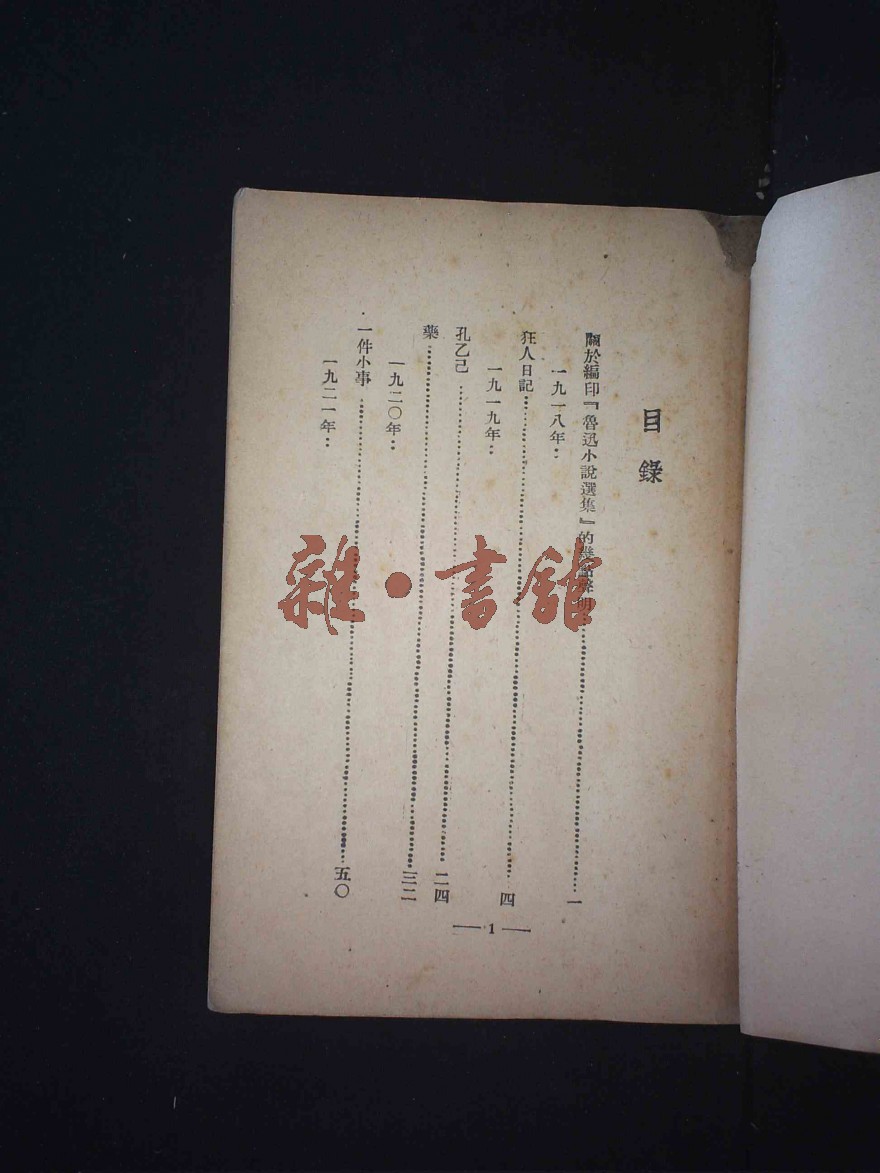 目錄
關於編印『魯迅小說選集』的幾點聲明……一
一九一八年：
狂人日記……四
一九一九年：
孔乙己……二四
藥……三二
一九二〇年：
一件小事……五〇
一九二一年：
— 1 —
雜·書館